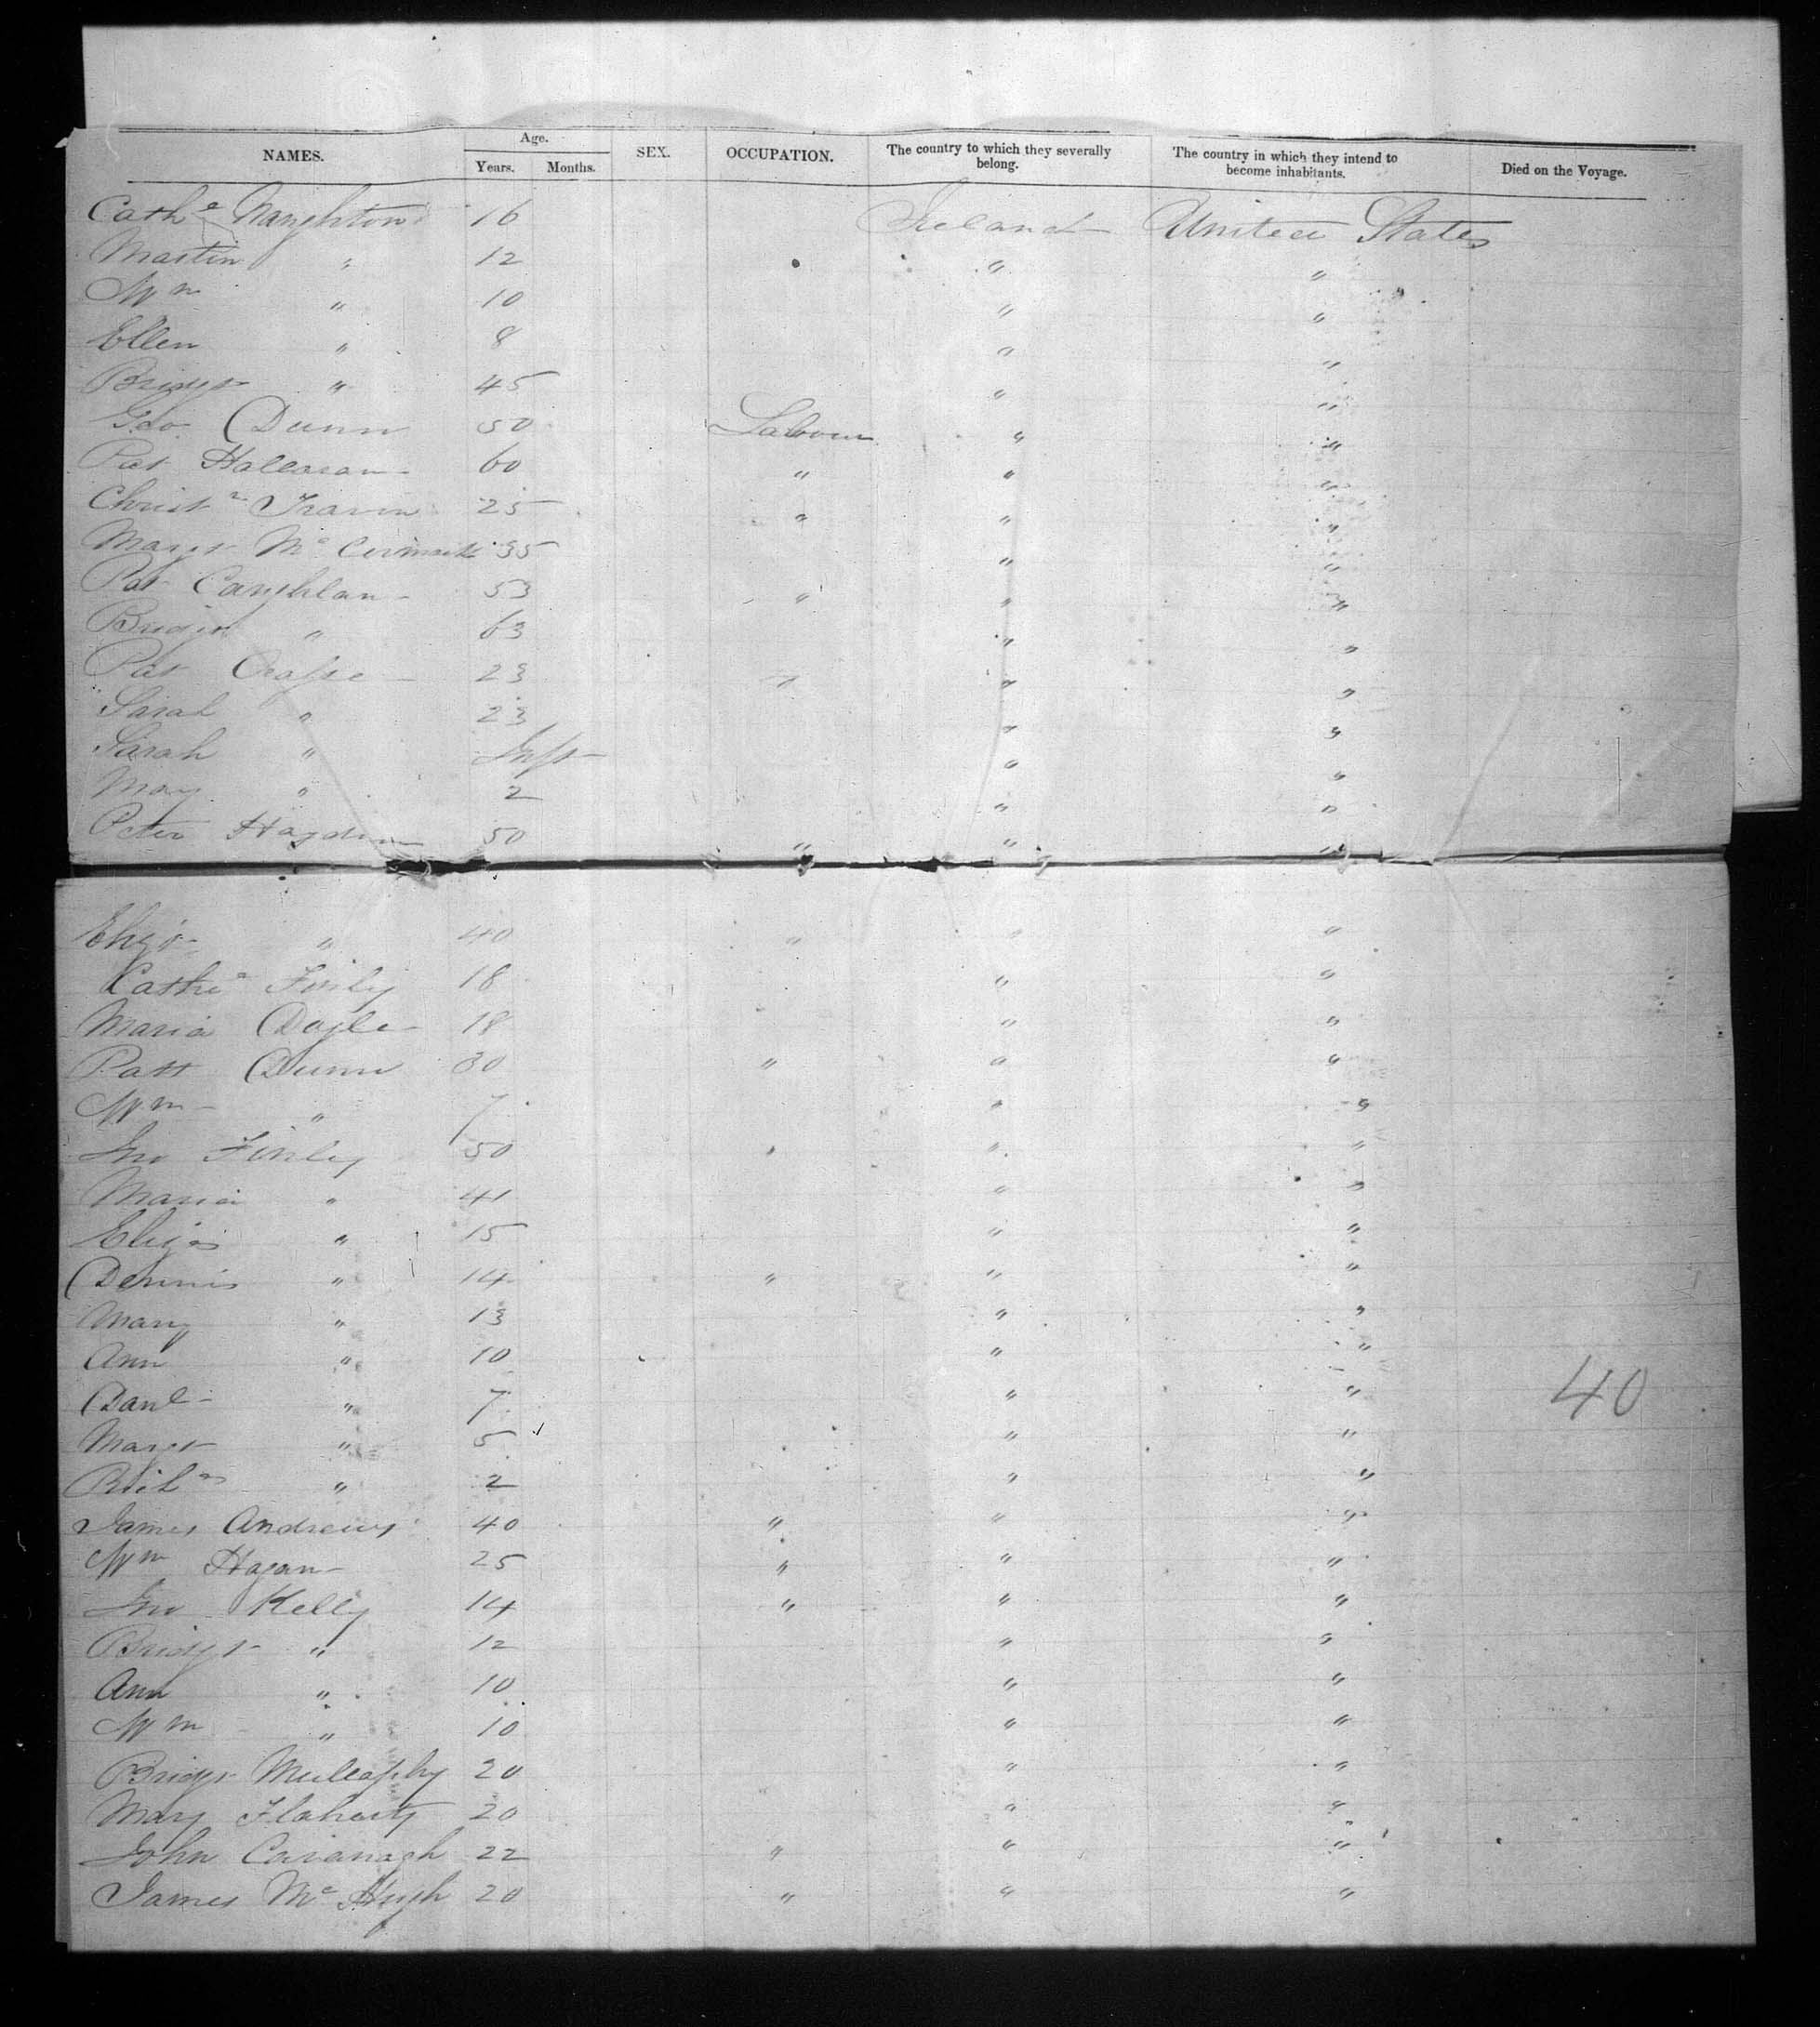 NAMES. Age. Years. Months. SEX. OCCUPATION. The country to which they severally belong. The country in which they intend to become inhabitants. Died on the Voyage.
Cathe Naughton 16 Ireland United States
Martin " 12 " "
Wm " 10 " "
Ellen " 8 " "
Bridgt " 45 " "
Geo Dunn 50 Labour " "
Pat Halloran 60 " " "
Christr 25 " " "
Margt Mc Cormack 35 " "
Pat Caughlan 53 " " "
Bridgt " 63 " "
Pat 23 " " "
Sarah " 23 " "
Sarah " Inft " "
Mary " 2 " "
Peter Hayden 50 " " "
Eliza " 40 " " "
Cathe Finley 18 " "
Maria Doyle 18 " "
Patt Dunn 30 " " "
Wm " 7 " "
Jno Finley 50 " " "
Maria " 41 " "
Eliza " 15 " "
Dennis " 14 " " "
Mary " 13 " "
Ann " 10 " "
Danl " 7 " " 40
Margt " 5 " "
" 2 " "
James Andrews 40 " " "
Wm Hagan 25 " " "
Jno Kelly 14 " " "
Bridgt " 12 " "
Ann " 10 " "
Wm " 10 " "
Bridgt 20 " "
Mary Flaherty 20 " "
John Cavanagh 22 " " "
James Mc Hugh 20 " " "